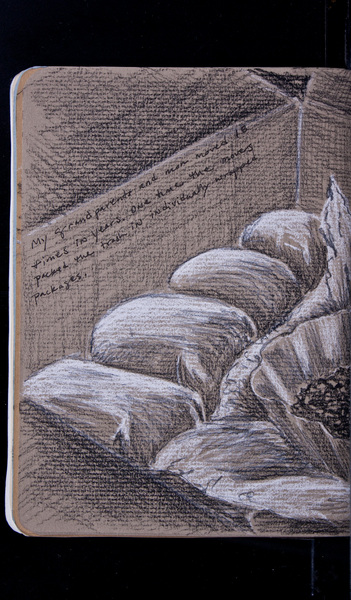 My grandparents and mom moved 18
times in years. One time the movers
packed the trash in individually wrapped
packages.